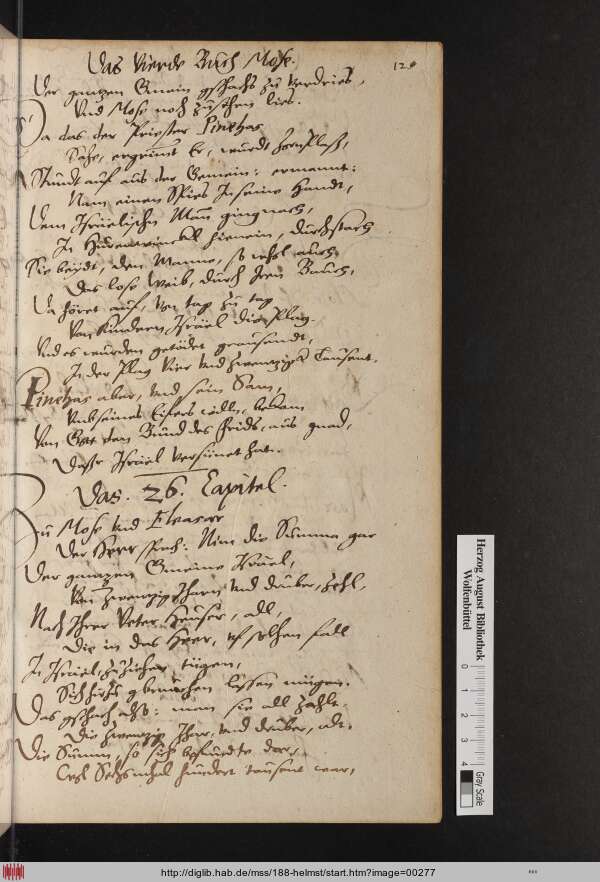 Das Vierde Buch Mose.
120
Der gantzen Gmein gschachs zu verdries,
Und Mose noch zusehen lies.
Da das der Priester Pinehas
Sahe, ergrimt Er, wurdt
Stundt auf aus der Gemein: ermannt:
Nam einen Spies In seine Handt,
Dem Israelischn Man ging nach,
In Hurenwinckl hienein, durchstach
Sie beydt, den Manne, so wohl auch
Das lose Weib, durch Iren Bauch,
Da höret auf, von tag zu tag
Von Kindern Israel die Plag.
Und es wurden getödet
In der Plag Vier und zwentziger Tausent.
Pinehas aber, und sein Sam,
Umb seines Eifers willn, bekam
Von Gott den Bund des Frids, aus gnad,
Dasr Israel versünet hat.
Das. 26. Capitel.
Zu Mose und Eleasar
Der Herr sprach: Nim die Summa gar
Der gantzen Gmeine Israel,
Von zwentzig Jharn und drüber, zehl,
Nach Ihrer Veter Heuser, all,
Die in das Heer, uf solchen fall
In Israel, zuziehen tügen,
Sich hirzu gbrauchen lassen mügen.
Das gschach also: man sie all zahlt
Die zwentzig Jhar, und drüber, alt.
Die Summ, so sich befundte dar,
Sechsmahl hundert tausent war,
Herzog August Bibliothek
Wolfenbüttel
0 1 2 3 4
Gray Scale
http://diglib.hab.de/mss/188-helmst/start.htm?image=00277